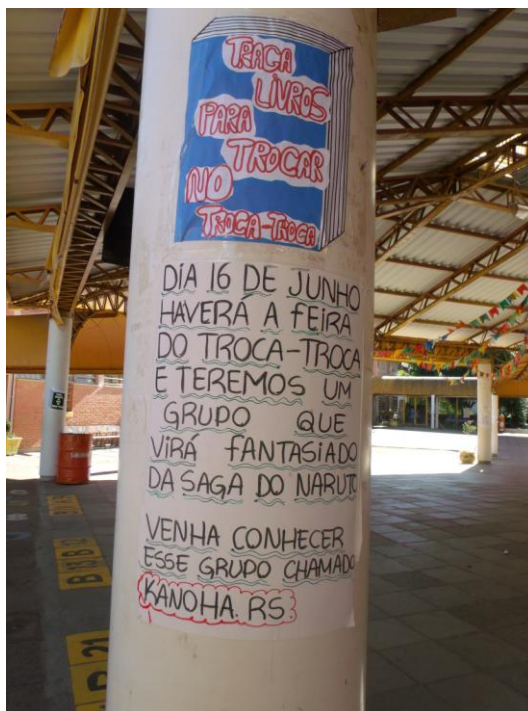 TRAGA
LIVROS
PARA
TROCAR
NO
TROCA-TROCA
DIA 16 DE JUNHO
HAVERÁ A FEIRA
DO TROCA-TROCA
E TEREMOS UM
GRUPO QUE
VIRÁ FANTASIADO
DA SAGA DO NARUTO
VENHA CONHECER
ESSE GRUPO CHAMADO
KANOHA.RS.
B 13 B 12
B 21